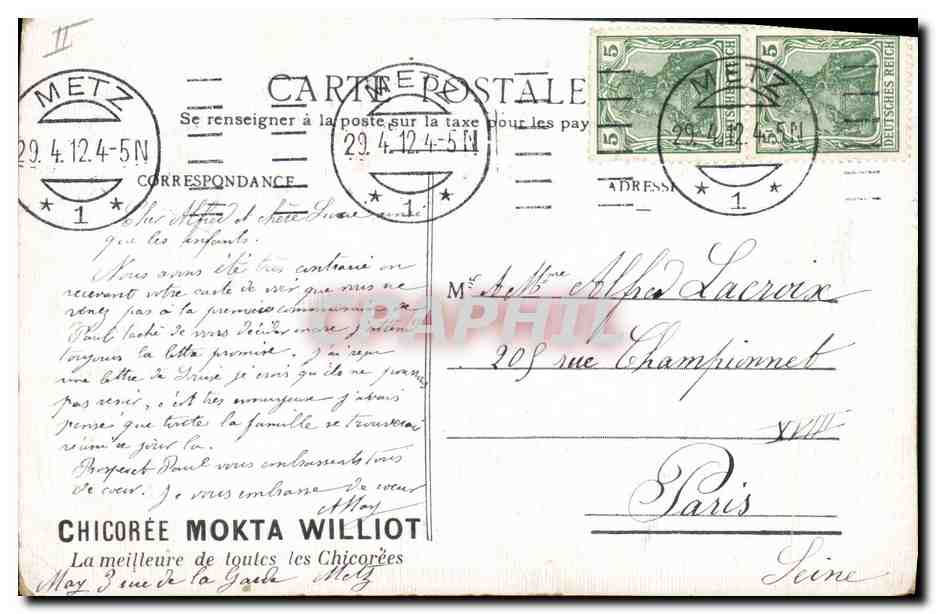 II
CARTE POSTALE
Se renseigner à la poste sur la taxe pour les pay
METZ
29. 4. 12. 4-5 N
* 1 *
METZ
29. 4. 12. 4-5 N
* 1 *
METZ
29. 4. 12. 4-5 N
* 1 *
5 5 DEUTSCHES REICH
5 5 DEUTSCHES REICH
CORRESPONDANCE
ADRESSE
Cher Alfred et chère
que les enfants.
Nous avons été très contrarié en
recevant votre carte de voir que vous ne
venez pas à la première communion de
Paul tache de vous décider encore j'attend
toujours la lettre promise. J'ai reçu
une lettre de je crois qu'ils ne pourrons
pas venir, c'est très ennuyeuse j'avais
pensé que toute la famille se trouverai
réuni ce jour la.
Prosper et Paul vous embrassent tous
de coeur. Je vous embrasse de coeur
A May
CHICORÉE MOKTA WILLIOT
La meilleure de toutes les Chicorées
May 3 rue de la Garde Metz
M r & Mme Alfred Lacroix
205 rue Championnet
XVIII
Paris
Seine
CPAPHIL